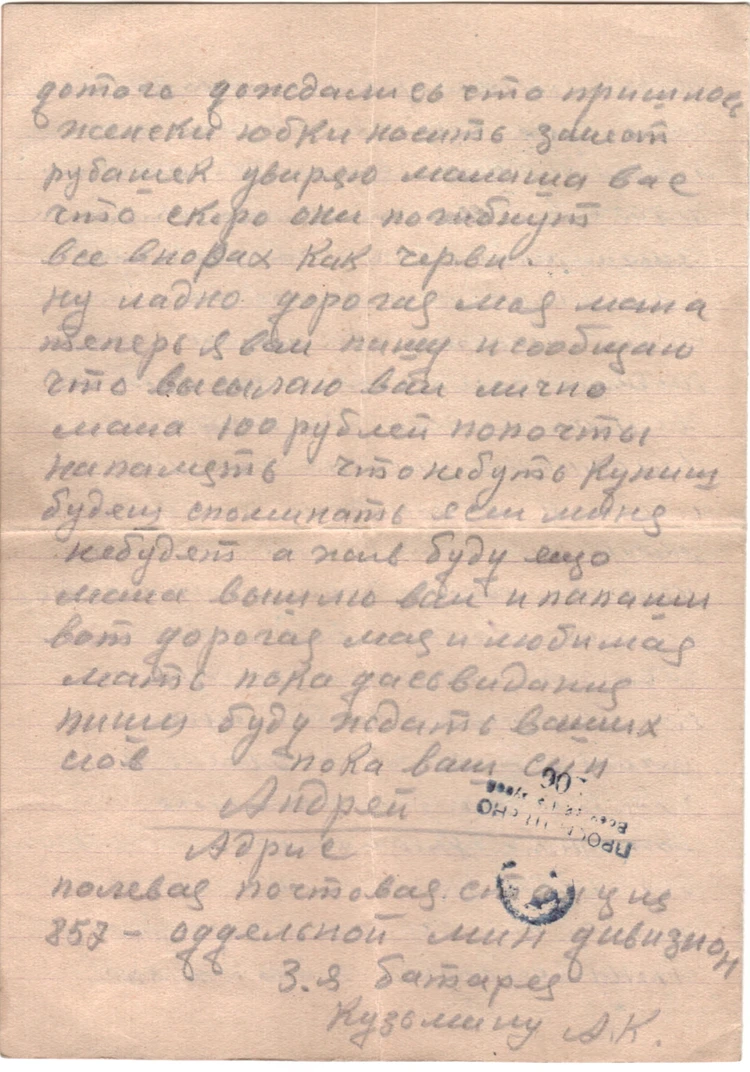 дотого дождались что пришлос
женски юбки носить замест
рубашек увиряю мамаша вас
что скоро они погибнут
все внорах как черви.
ну ладно дорогая мая мама
теперь я вам пишу и сообщаю
что высылаю вам лично
мама 100 рублей попочты
напамять чтонебуть купиш
будеш споминать если миня
небудет а жыв буду ещо
мама вышлю вам и папаши
вот дорогая мая и любимая
мать пока дасьвидания
пиши буду ждать ваших
слов пока ваш сын
Андрей
ПРОСМОТРЕНО
06
Адрис
полевая почтовая станция
857 - оддельной мин дивизион
3.я батарея
Кузьмину А.К.